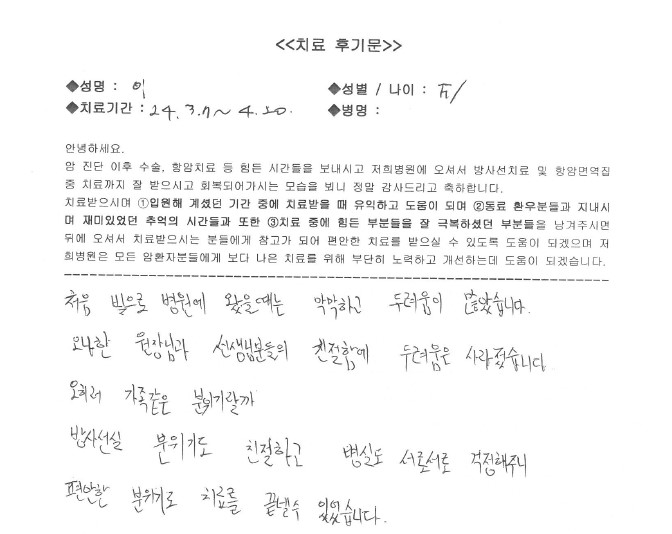 <<치료 후기문>>
◆성명 : 이 ◆성별 / 나이 : F/
◆치료기간 : 24. 3. 7 ~ 4. 20. ◆병명 :
안녕하세요.
암 진단 이후 수술, 항암치료 등 힘든 시간들을 보내시고 저희병원에 오셔서 방사선치료 및 항암면역집
중 치료까지 잘 받으시고 회복되어가시는 모습을 뵈니 정말 감사드리고 축하합니다.
치료받으시며 ①입원해 계셨던 기간 중에 치료받을 때 유익하고 도움이 되며 ②동료 환우분들과 지내시
며 재미있었던 추억의 시간들과 또한 ③치료 중에 힘든 부분들을 잘 극복하셨던 부분들을 남겨주시면
뒤에 오셔서 치료받으시는 분들에게 참고가 되어 편안한 치료를 받으실 수 있도록 도움이 되겠으며 저
희병원은 모든 암환자분들에게 보다 나은 치료를 위해 부단히 노력하고 개선하는데 도움이 되겠습니다.
처음 빛으로 병원에 왔을때는 막막하고 두려움이 많았습니다.
원장님과 선생님분들의 친절함에 두려움은 사라졌습니다
오히려 가족같은 분위기랄까
방사선실 분위기도 친절하고 병실도 서로서로 걱정해주니
편안한 분위기로 치료를 끝낼수 있었습니다.